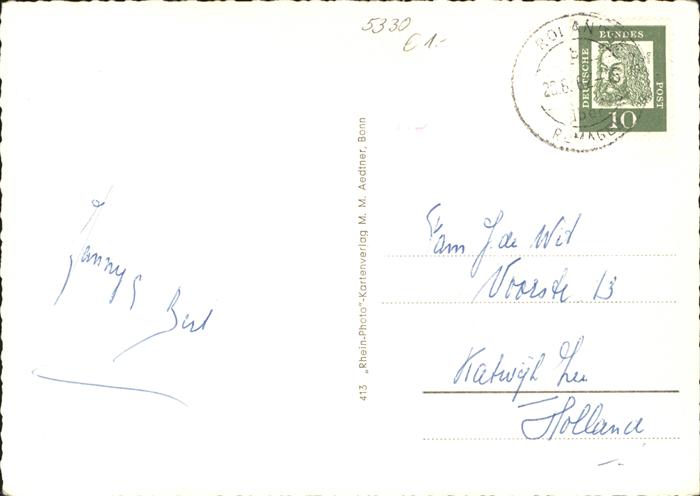 5330
€ 1.-
DEUTSCHE BUNDES POST
10
ROLAND
20.6.
REMAGEN
413 „Rhein-Photo"-Kartenverlag M. M. Aedtner, Bonn
Fam J. de Wit
Voorstr 13
Katwijk Zee
Holland
Bert